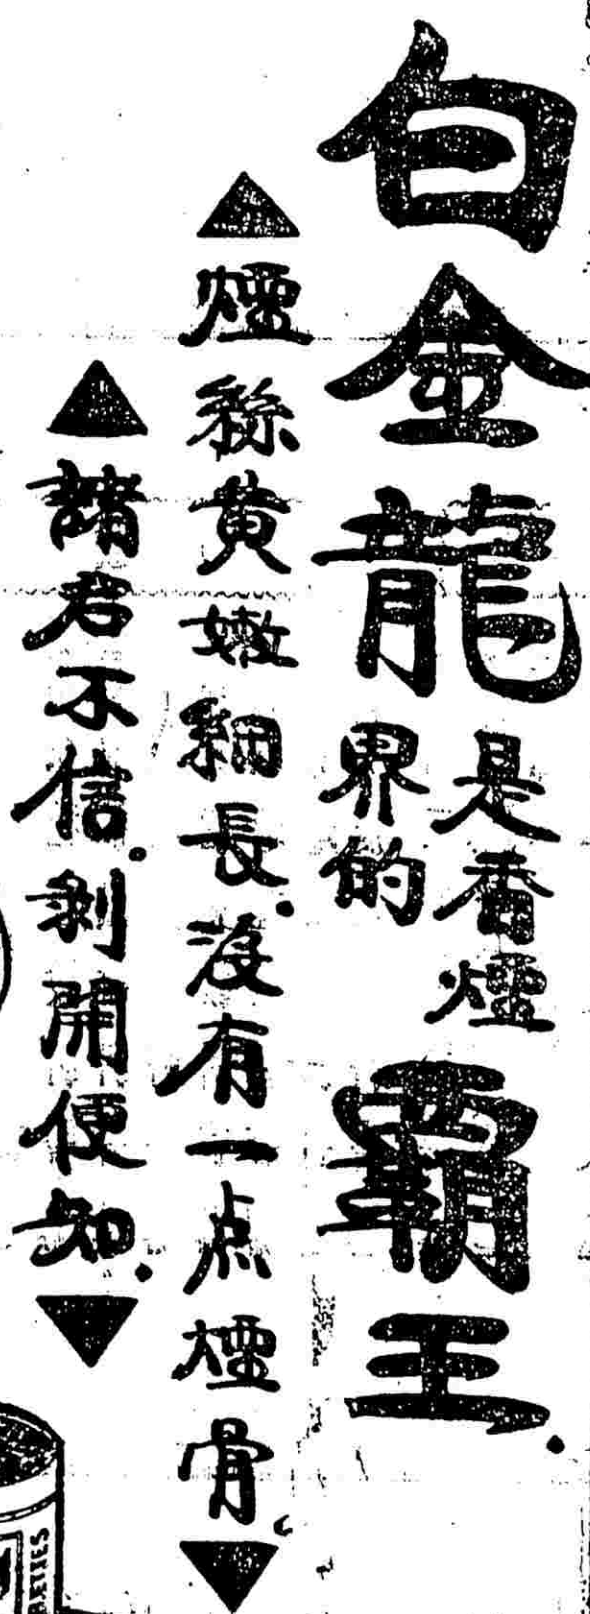 白金龍是香煙界的霸王.
▲煙絲黃嫩細長.沒有一点煙骨。▼
▲諸君不信.剝開便知.▼